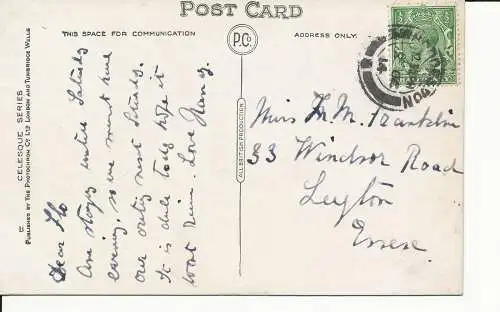 POST CARD
THIS SPACE FOR COMMUNICATION
ADDRESS ONLY.
P.Co
ALL BRITISH PRODUCTION
CELESQUE SERIES
PUBLISHED BY THE PHOTOCHROM CO. LTD LONDON AND TUNBRIDGE WELLS
Dear Flo
Are staying until Saturday
evening, so we must have
our outing next Saturday.
It is dull today hope it
wont rain. Love
Miss M. Franklin
33 Windsor Road
Leyton
Essex.